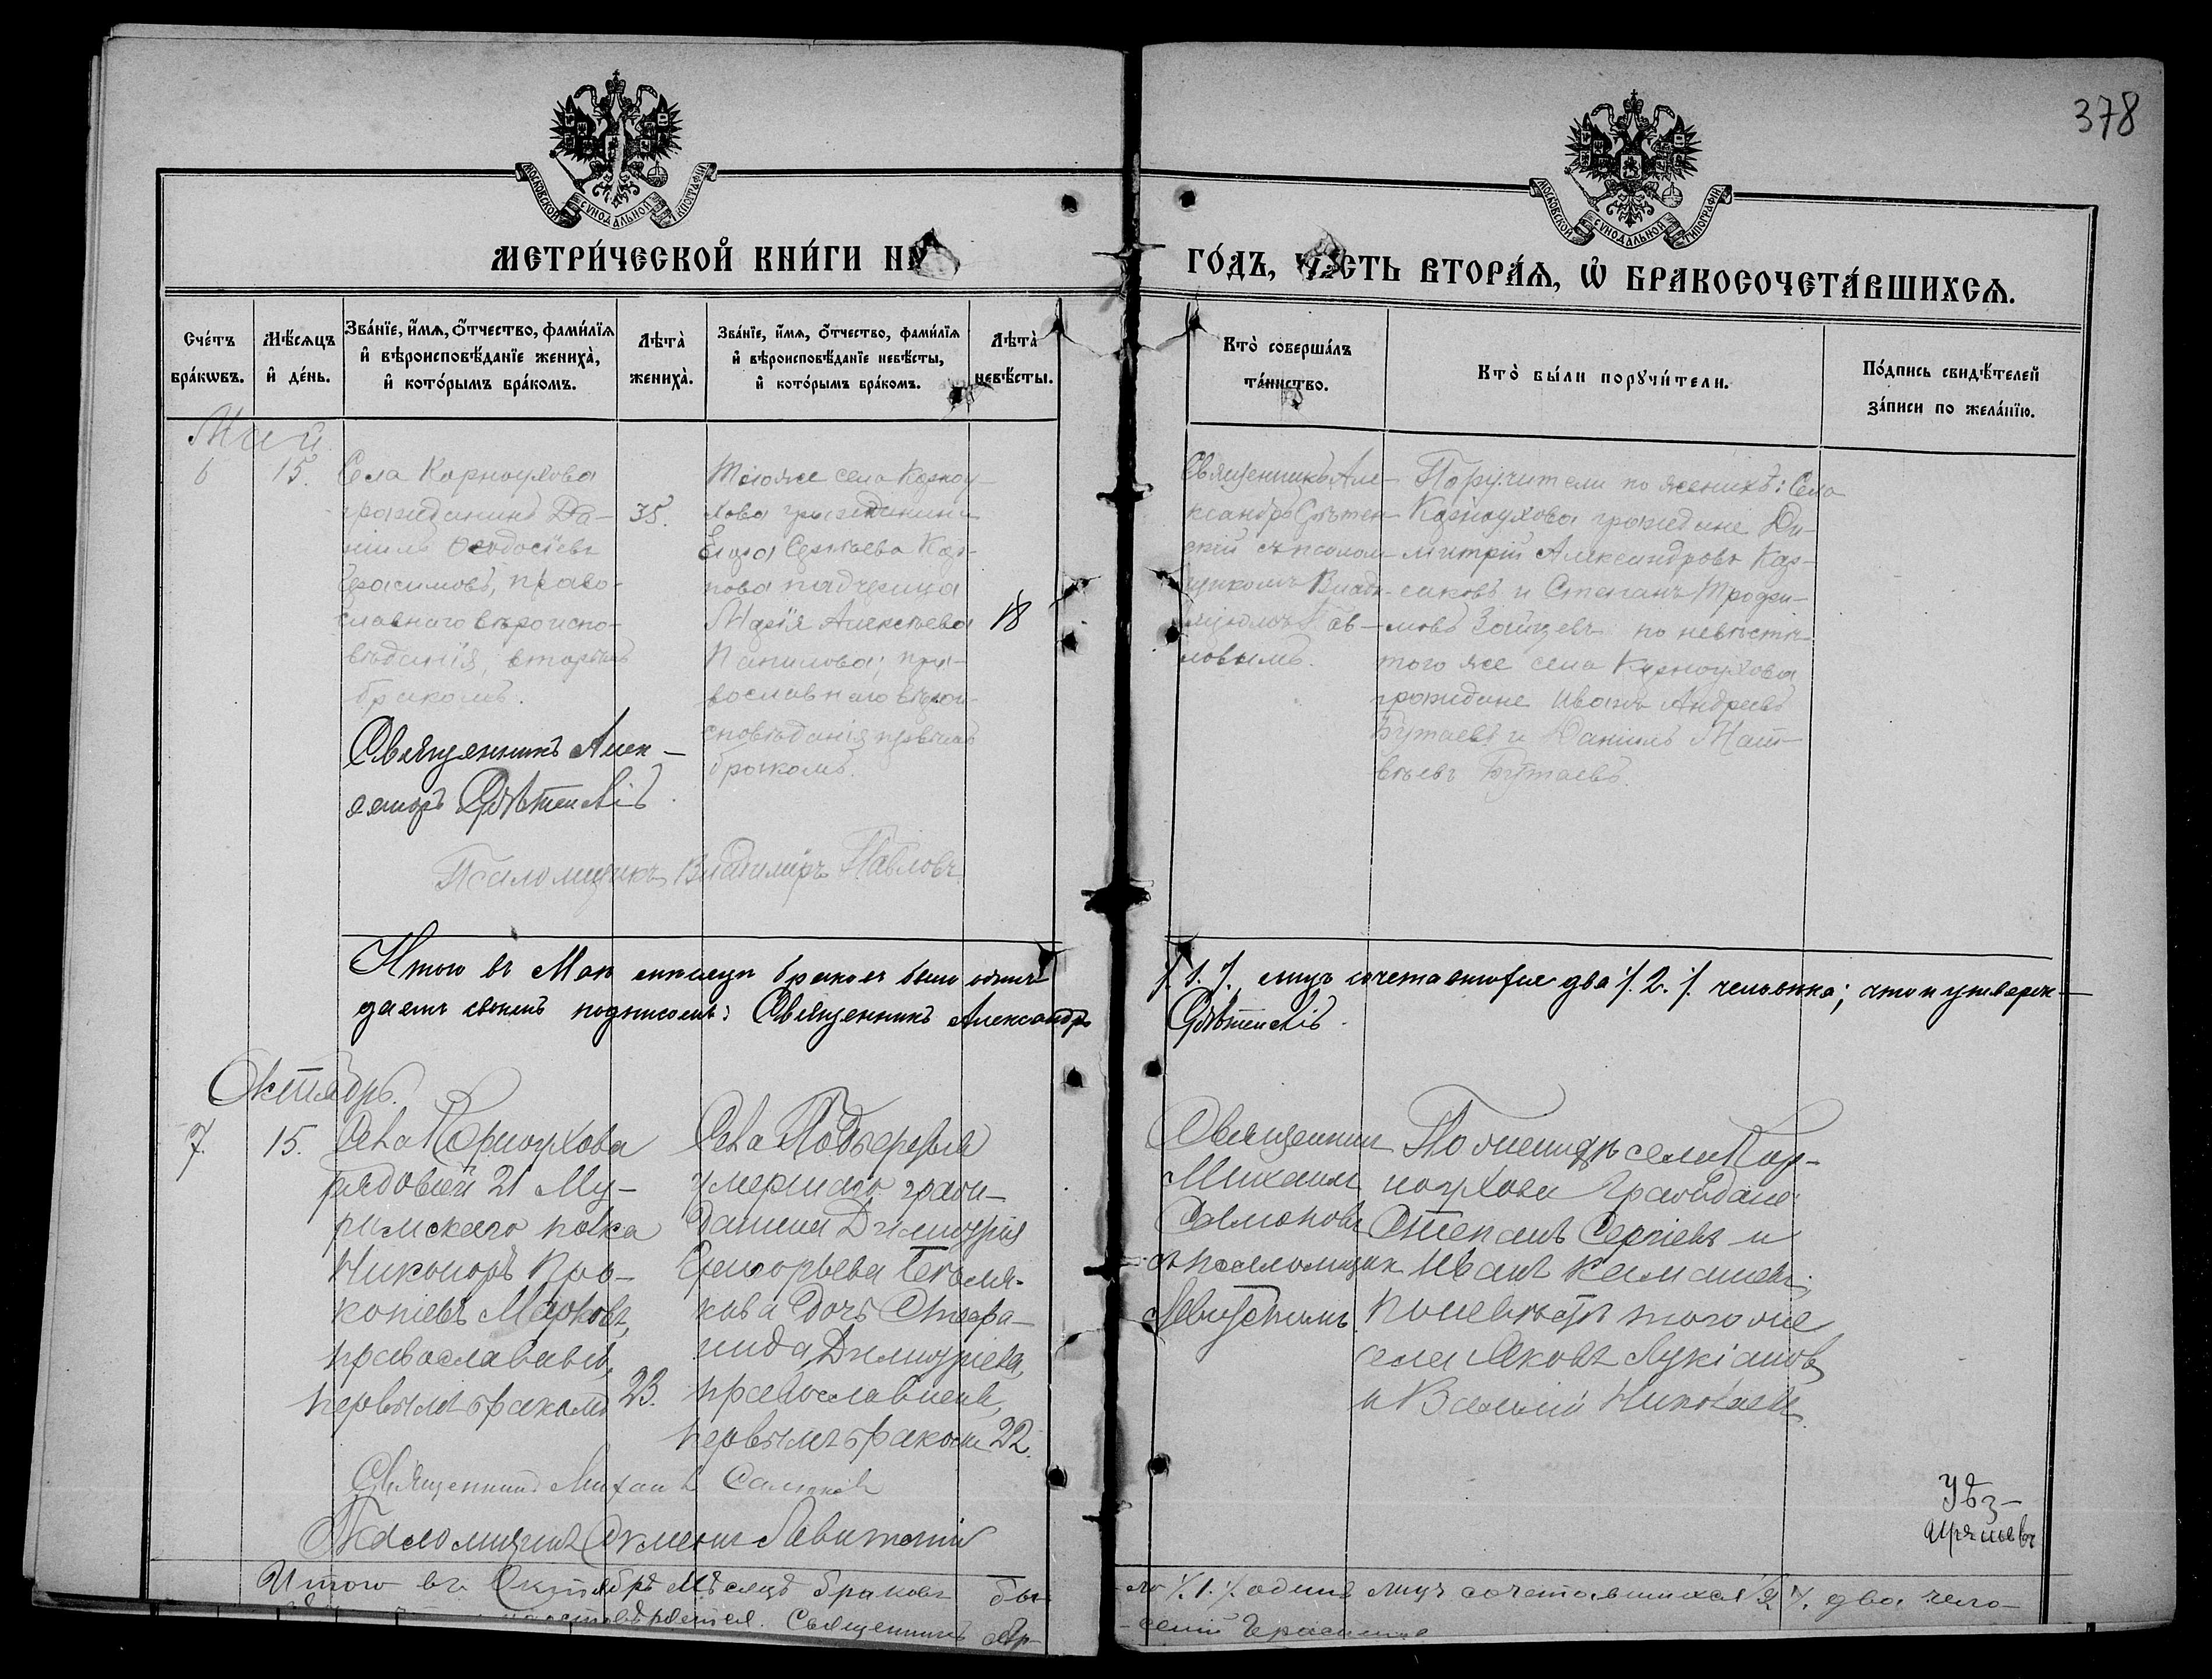 378
МОСКОВСКОЙ СѴНОДАЛЬНОЙ ТИПОГРАФІИ
МОСКОВСКОЙ СѴНОДАЛЬНОЙ ТИПОГРАФІИ
МЕТРИ́ЧЕСКОЙ КНИ́ГИ НА
ГО́ДЪ, ЧА́СТЬ ВТОРА́Я, Ѡ҆ БРАКОСОЧЕТА́ВШИХСЯ.
Сче́тъ
бра́кѡвъ.
Мѣ́сяцъ
и҆ де́нь.
Зва́нїе, и҆́мя, ѻ҆́тчество, фами́лїя
и҆ вѣроисповѣ́данїе жениха̀,
и҆ кото́рымъ бра́комъ.
Лѣта̀
жениха̀.
Зва́нїе, и҆́мя, ѻ҆́тчество, фами́лїя
и҆ вѣроисповѣ́данїе невѣ́сты,
и҆ кото́рымъ бра́комъ.
Лѣта̀
невѣ́сты.
Кто̀ соверша́лъ
та́инство.
Кто̀ бы́ли порꙋчи́тели.
По́дпись свидѣ́телей
за́писи по жела́нїю.
Май
6
15.
Села Карноухова
гражданинъ Да-
нiилъ Ѳеодосiевъ
Герасимовъ, право-
славнаго вѣроиспо-
вѣданiя, вторымъ
бракомъ.
35.
Тогоже села Карноу-
хова гражданина
Егора Сергѣева Кар-
пова падчерица
Марiя Алексѣева
Панилова, пра-
вославнаго вѣрои-
сповѣданiя первымъ
бракомъ.
18
Священникъ Але-
ксандръ Срѣтен-
скiй съ псалом-
щикомъ Влади-
мiромъ Пав-
ловымъ.
Поручители по женихѣ: Села
Карноухова граждане Ди-
митрiй Александровъ Кар-
саковъ и Степанъ Трофи-
мовъ Зайцевъ по невѣстѣ
того же села Карноухова
граждане Иванъ Андреевъ
Бутаевъ и Данiилъ Мат-
вѣевъ Бутаевъ.
Священникъ Алек-
сандръ Срѣтенскiй.
Псаломщикъ Владимiръ Павловъ
Итого въ Маѣ мѣсяцѣ браковъ было одинъ
/.1./. лицъ сочетавшихся два /.2./. человѣка; что и утверж-
даемъ своимъ подписомъ: Священникъ Александръ
Срѣтенскiй.
Октябрь.
7.
15.
Села Карноухова
рядовой 21 Му-
ромскаго полка
Никоноръ Про-
копiевъ Марковъ,
православный,
первымъ бракомъ
23.
Села Подберезья
умершаго граж-
данина Димитрiя
Григорьева
дочь Стефа-
нида Димитрiева,
православной,
первымъ бракомъ
22.
Священникъ
Михаилъ
Самоновъ
съ псаломщик
Левитскимъ
По женихѣ села Кар-
ноухова граждане
Степанъ Сергiевъ и
Иванъ
по невѣстѣ того же
села Яковъ Лукiановъ
и Василiй Николаевъ.
Священникъ Михаилъ Самоновъ
Псаломщикъ Левитскiй
Итого въ Октябрѣ мѣсяцѣ браковъ бы-
ло /.1./. одинъ лицъ сочетавшихся /.2./. два чело-
Священникъ Ар-
сенiй